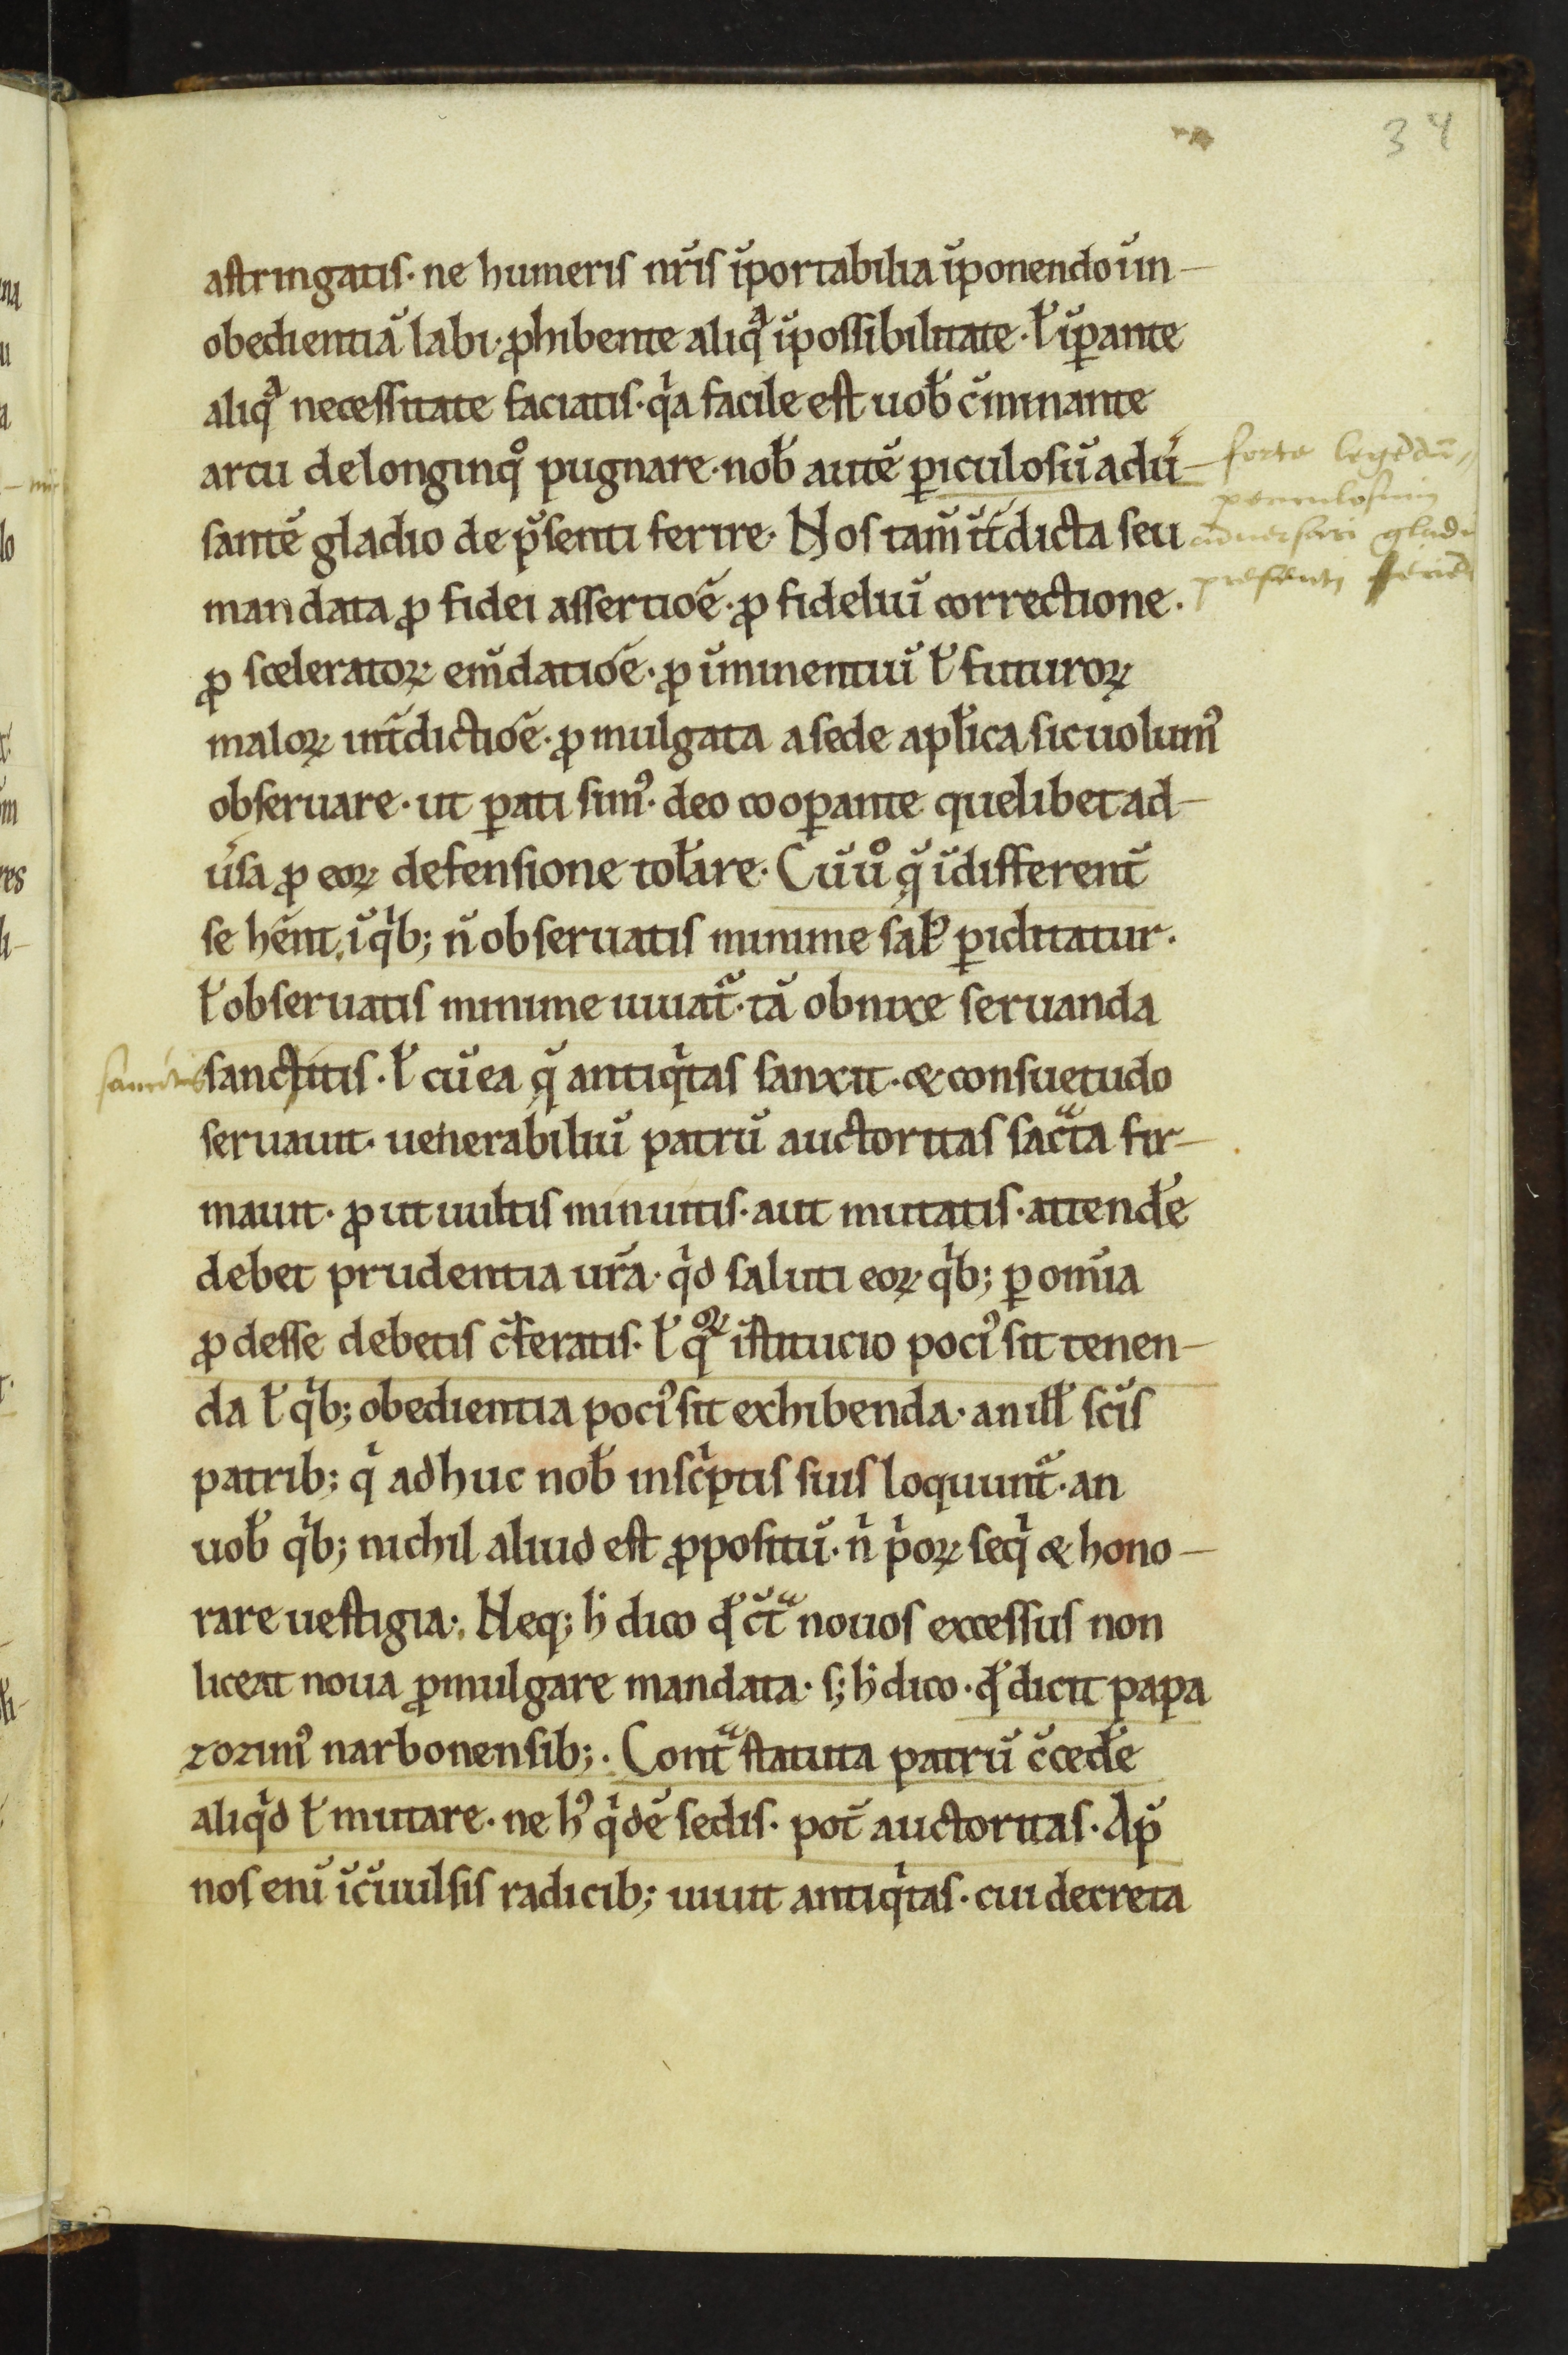 34
astringatis · ne humeris nr̄is īportabilia īponendo ī in-
obedientiā labi · ꝓhibente aliqͣ īpossibilitate · ł īꝑante
aliqͣ necessitate faciatis · qͥa facile est uob̄ c̄minante
arcu de longinqͦ pugnare · nob̄ autē ꝑiculosū adū-
forte legēdū
periculosum
santē gladio de p̄senti ferire · Nos tam̄ īt̄dicta seu
aduersari gladi
mandata ꝓ fidei assertiōe · ꝓ fideliū correctione ·
presenti
ꝓ sceleratoꝝ em̄datiōe · ꝓ īminentiū ł futuroꝝ
maloꝝ int̄dictiōe · ꝓmulgata a sede apl̄ica sic uolumꝰ
obseruare · ut ꝑati simꝰ · deo cooꝑante quelibet ad-
ūsa ꝓ eoꝝ defensione tol̄are · Cū uͦ q̄ īdifferent̄
se hēnt · ī qͥb; n̄ obseruatis minime sał ꝑiclitatur ·
ł obseruatis minime iuuat᷑ · tā obnixe seruanda
sanctitis · ł cū ea q̄ antiqͥtas sanxit · & consuetudo
seruauit · uenerabiliū patrū auctoritas sac̄ta fir-
mauit · ꝓut uultis minuitis · aut mutatis · attend̄e
debet prudentia ur̄a · qͥd saluti eoꝝ qͥb; ꝑ om̄ia
ꝓdesse debetis c̄feratis · ł qͦꝝ īstitucio pociꝰ sit tenen-
da ł qͥb; obedientia pociꝰ sit exhibenda · an ill̄ sc̄is
patrib; qͥ adhuc nob̄ in scͥptis suis loquunt᷑ · an
uob̄ qͥb; nichil aliud est ꝓpositū · nͥ pͥoꝝ seqͥ & hono-
rare uestigia · Neq; h̄ dico qd̄ c̄tͣ nouos excessus non
liceat noua ꝓmulgare mandata · s; h̄ dico · qd̄ dicit papa
zozimꝰ narbonensib; · Contͣ statuta patrū c̄ced̄e
aliqͥd ł mutare · ne hꝰ qͥdē sedis · pot̄ auctoritas · Ap̄
nos enī īc̄uulsis radicib; uiuit antiqͥtas · cui decreta